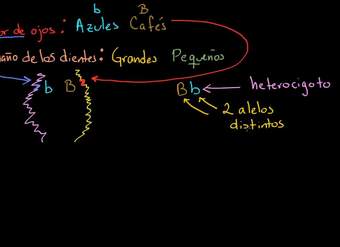 b B
or de ojos: Azules Cafés
año de los dientes: Grandes Pequeños
b B Bb heterocigoto
2 alelos
distintos